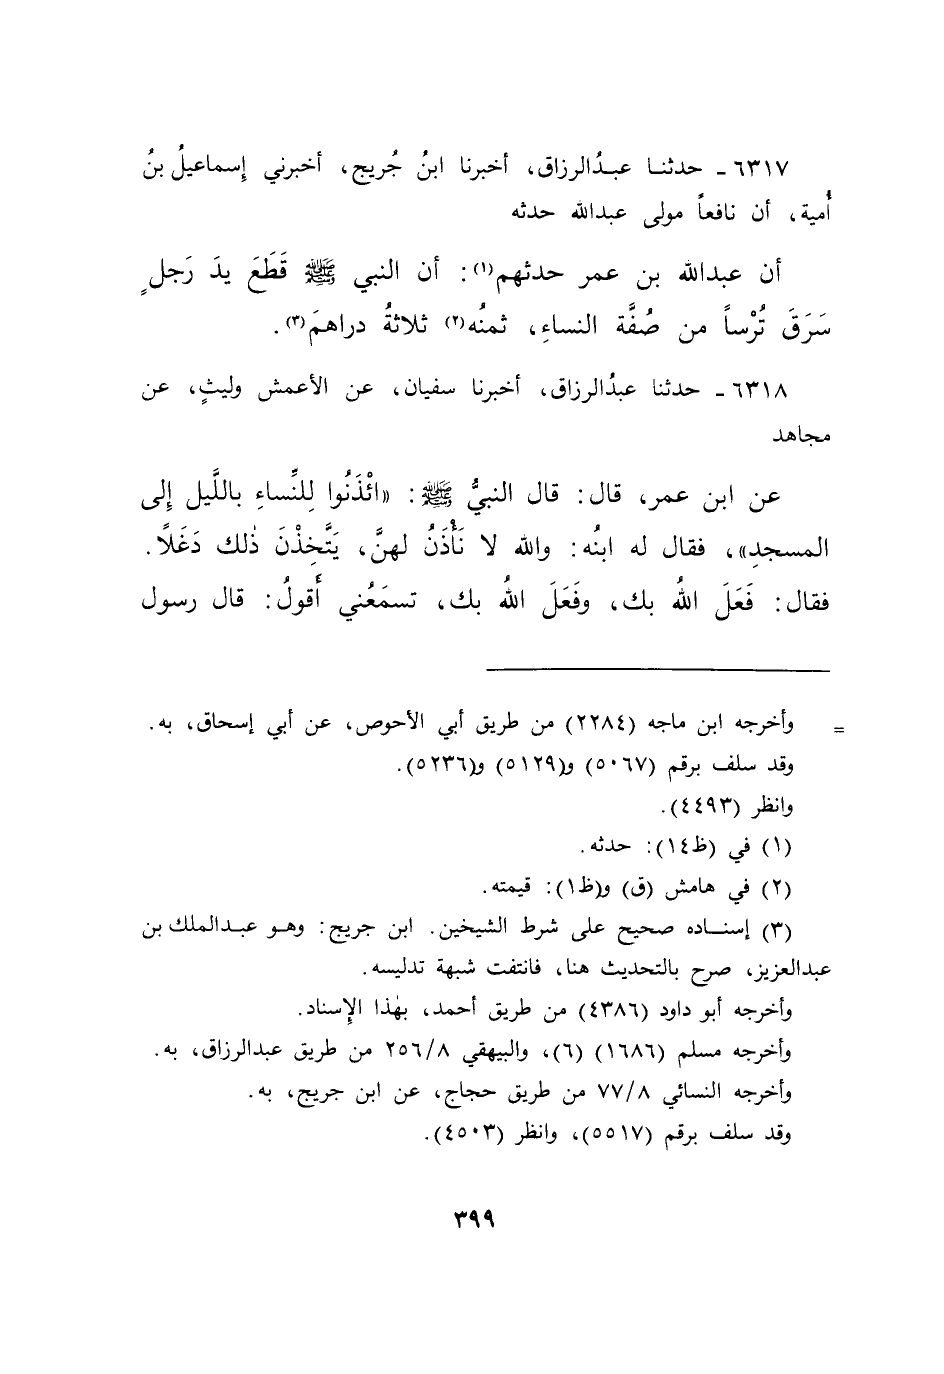 ٦٣١٧ ـ حدثنـا عبـدُالرزاق، أخبرنا ابنُ جُريج، أخبرني إسماعيلُ بنُ
أُمية، أن نافعاً مولى عبدالله حدثه
أن عبدالله بن عمر حدثهم(١): أن النبي ﷺ قَطَعَ يدَ رَجلٍ
سَرَقَ تُرْساً من صُفَّة النساءِ، ثمنُه(٢) ثلاثةُ دراهمَ(٣).
٦٣١٨ ـ حدثنا عبدُالرزاق، أخبرنا سفيان، عن الأعمش وليثٍ، عن
مجاهد
عن ابن عمر، قال: قال النبيُّ ﷺ: «ائْذَنُوا لِلنِّساءِ باللَّيل إلى
المسجدِ»، فقال له ابنُه: والله لا نَأْذَنُ لهنَّ، يَتَّخِذْنَ ذٰلك دَغَلاً.
فقال: فَعَلَ اللهُ بك، وفَعَلَ اللهُ بك، تسمَعُني أَقولُ: قال رسول
= وأخرجه ابن ماجه (٢٢٨٤) من طريق أبي الأحوص، عن أبي إسحاق، به.
وقد سلف برقم (٥٠٦٧) و(٥١٢٩) و(٥٢٣٦).
وانظر (٤٤٩٣).
(١) في (ظ١٤): حدثه.
(٢) في هامش (ق) و(ظ١): قيمته.
(٣) إسنـاده صحيح على شرط الشيخين. ابن جريج: وهـو عبـدالملك بن
عبدالعزيز، صرح بالتحديث هنا، فانتفت شبهة تدليسه.
وأخرجه أبو داود (٤٣٨٦) من طريق أحمد، بهٰذا الإسناد.
وأخرجه مسلم (١٦٨٦) (٦)، والبيهقي ٢٥٦/٨ من طريق عبدالرزاق، به.
وأخرجه النسائي ٧٧/٨ من طريق حجاج، عن ابن جريج، به.
وقد سلف برقم (٥٥١٧)، وانظر (٤٥٠٣).
٣٩٩